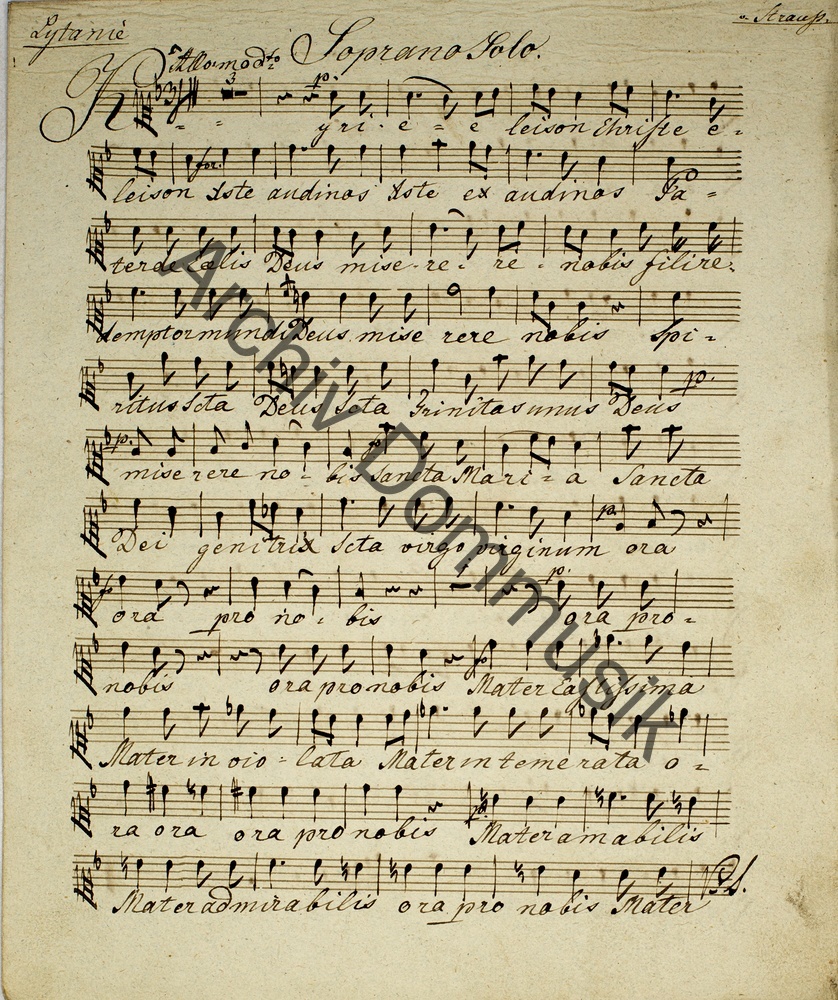 Lytanie
v. Strauß.
Allo. modto.
Soprano Solo.
3 p.
Kyri - e - e leison Christe e -
for.
leison Xste audi nos Xste ex audi nos Pa -
ter de Cælis Deus mise - re - re - nobis fili re -
demptor mundi Deus mise rere nobis Spi -
p.
ritus Scta Deus Scta Trinitas unus Deus
p.
mise rere no - bis Sancta Mari - a Sancta
p.
Dei genitrix Scta virgo virginum ora
p.
ora pro no - bis ora pro -
nobis ora pro nobis Mater Castissima
Mater in vio - lata Mater in teme rata o -
ra ora ora pro nobis Mater amabilis
Mater admirabilis ora pro nobis Mater
Archiv Dommusik